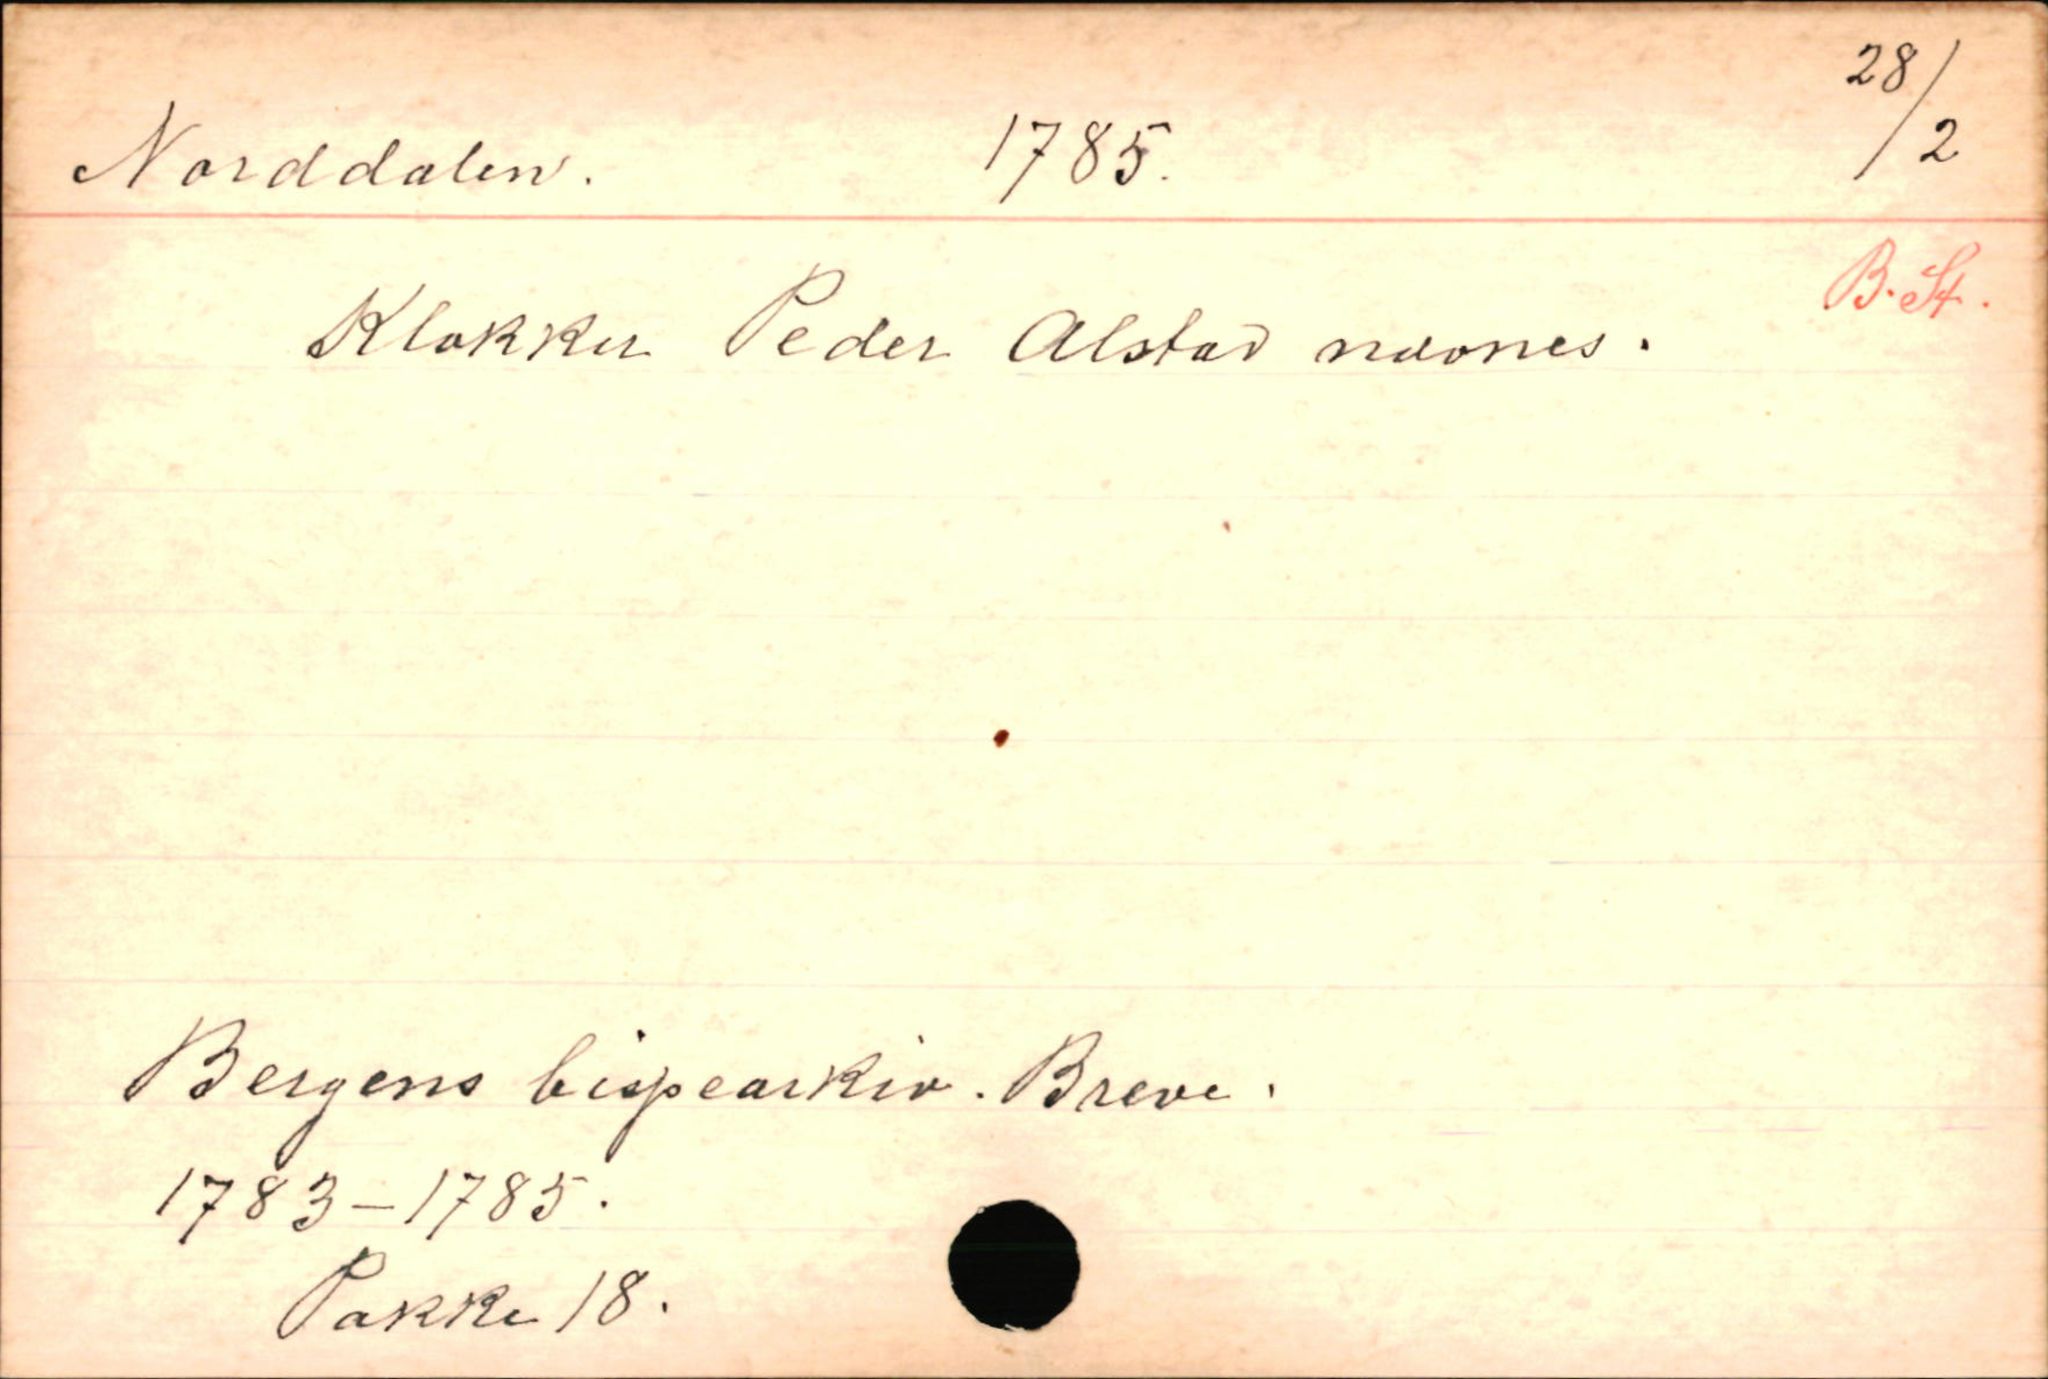 Norddalen. 1785. 28/2
B. St.
Klokker Peder Alstad nævnes.
Bergens bispearkiv. Breve.
1783-1785.
Pakke 18.